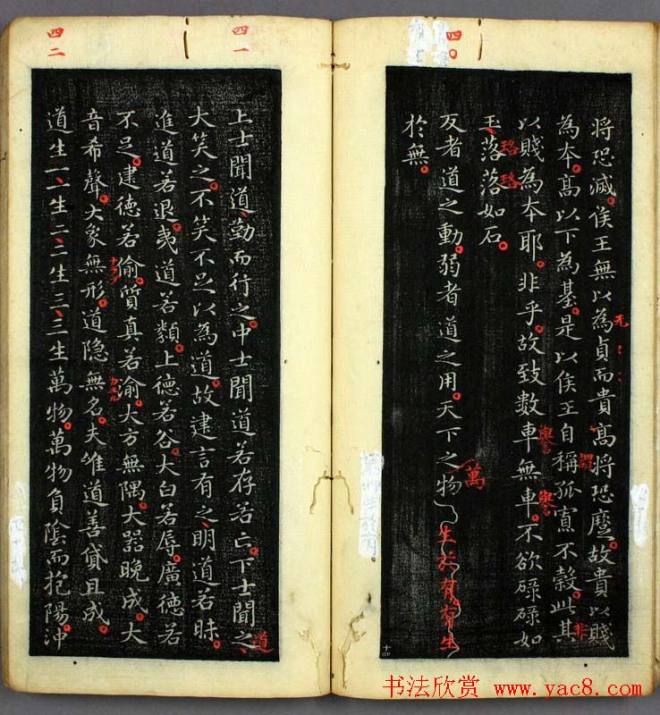 四〇
將恐滅。侯王無以為貞而貴髙將恐蹷。故貴以賤
无
為本。髙以下為基。是以侯王自稱孤寡不穀。此其
謂
非
以賤為本耶。非乎。故致数車無車。不欲碌碌如
輿
輿
玉。落落如石。
珞珞
反者道之動。弱者道之用。天下之物生於有有生
萬
於無。
十四
四一
上士聞道勤而行之。中士聞道若存若亡。下士聞之
道
大笑之。不笑不足以為道。故建言有之。明道若昧。
進道若退。夷道若類。上德若谷。大白若辱。廣德若
不足。建德若偷。質真若渝。大方無隅。大器晚成。大
音希聲。大象無形。道隱無名。夫唯道善貸且成。
四二
道生一。一生二。二生三。三生萬物。萬物負陰而抱陽。沖
书法欣赏 www.yac8.com